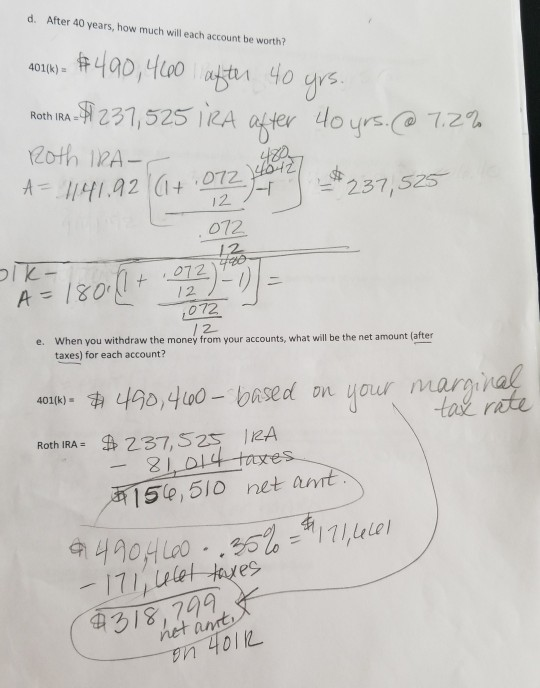 d. After 40 years, how much will each account be worth?
401(k) = $490,460 after 40 yrs.
Roth IRA = $237,525 IRA after 40 yrs. @ 7.2%
Roth IRA -
480
A = 1141.92 [(1 + .072/12)^40·12 - 1] = $237,525
.072
12
01K -
A = 180·[(1 + .072/12)^480 - 1)] =
.072
12
e. When you withdraw the money from your accounts, what will be the net amount (after
taxes) for each account?
401(k) = $490,460 - based on your marginal
tax rate
Roth IRA = $237,525 IRA
- 81,014 taxes
$156,510 net amt.
$490,460 · .35% = $171,661
- 171,661 taxes
$318,799
net amt.
on 401K